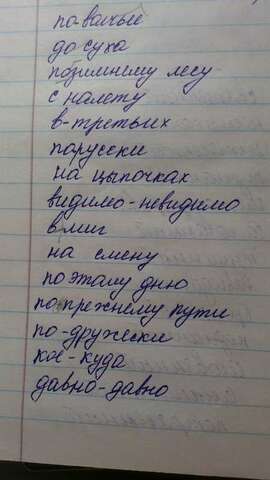 по-волчьи
досуха
позимнему лесу
с налету
в-третьих
парусски
на цыпочках
видимо-невидимо
вмиг
на смену
поэтому дню
по прежнему пути
по-дружески
кое-куда
давно-давно